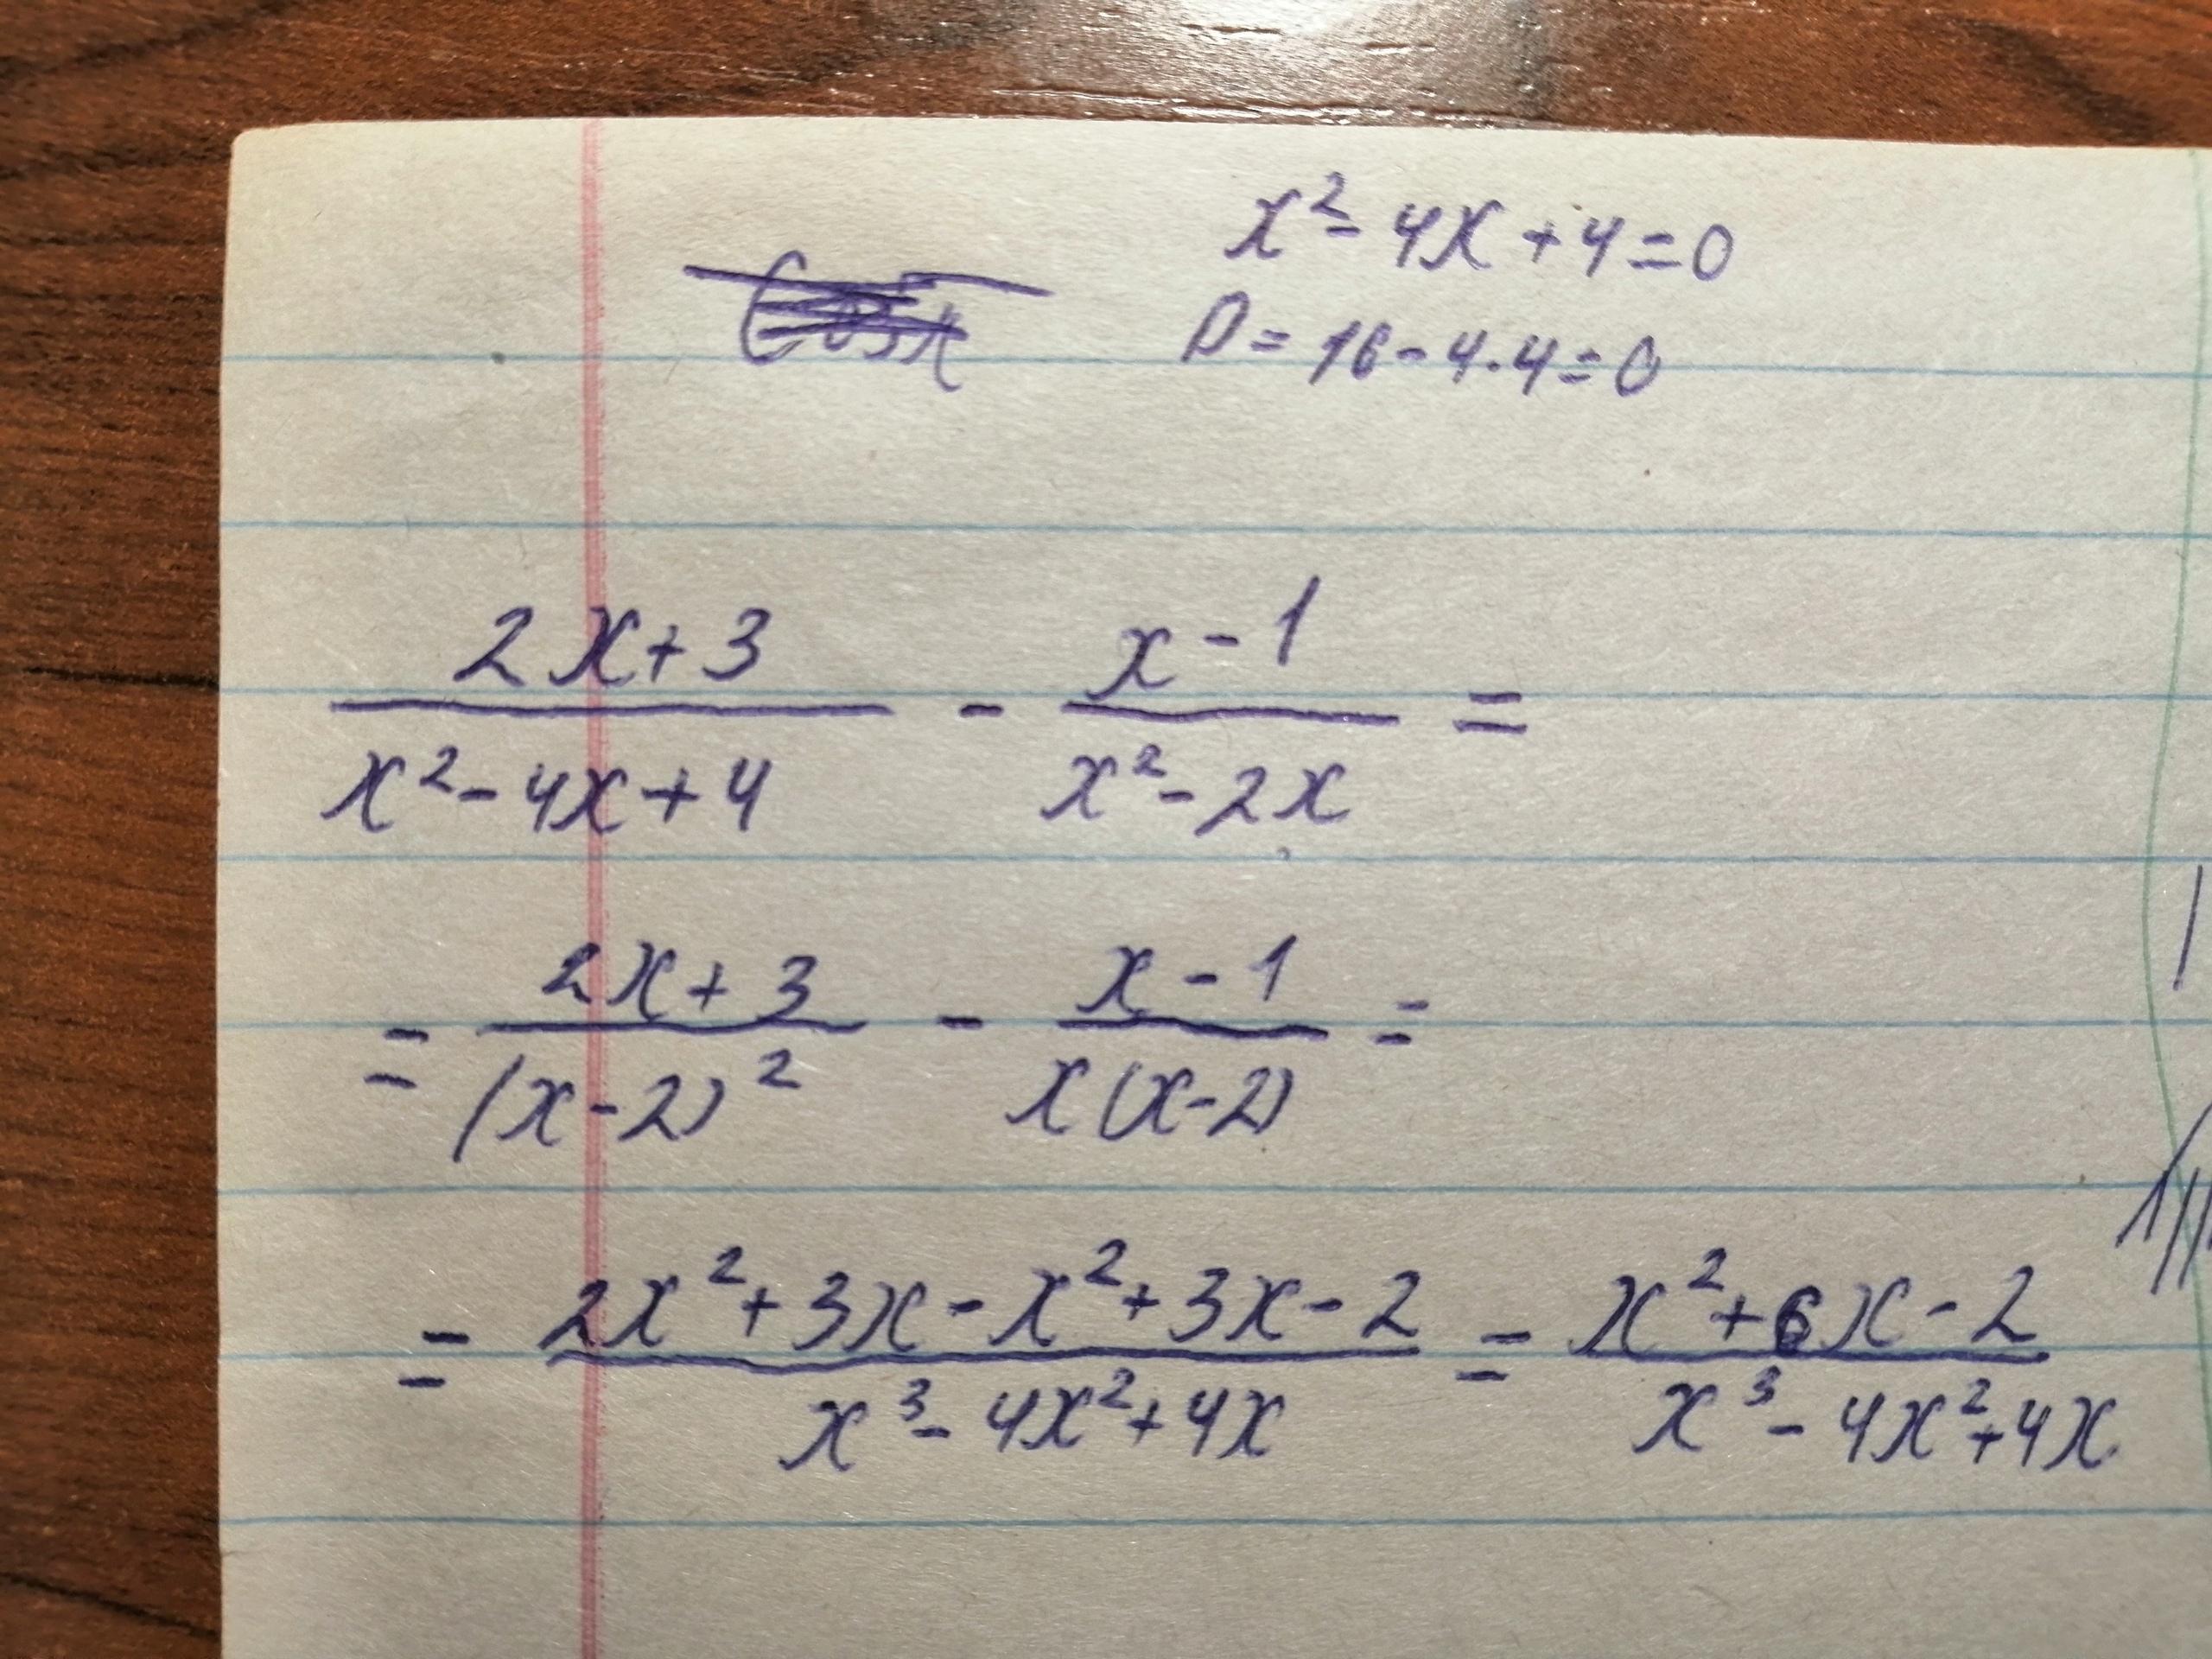 x² - 4x + 4 = 0
D = 16 - 4·4 = 0
(2x + 3)/(x² - 4x + 4) - (x - 1)/(x² - 2x) =
= (2x + 3)/(x - 2)² - (x - 1)/(x(x - 2)) =
= (2x² + 3x - x² + 3x - 2)/(x³ - 4x² + 4x) = (x² + 6x - 2)/(x³ - 4x² + 4x)